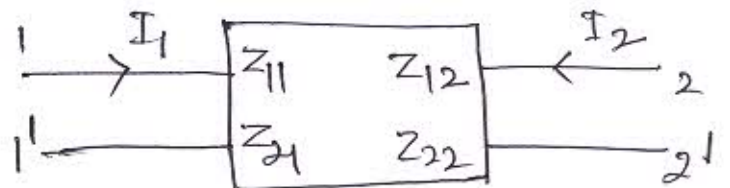 1 I1 I2
Z11 Z12 2
1' Z21 Z22 2'